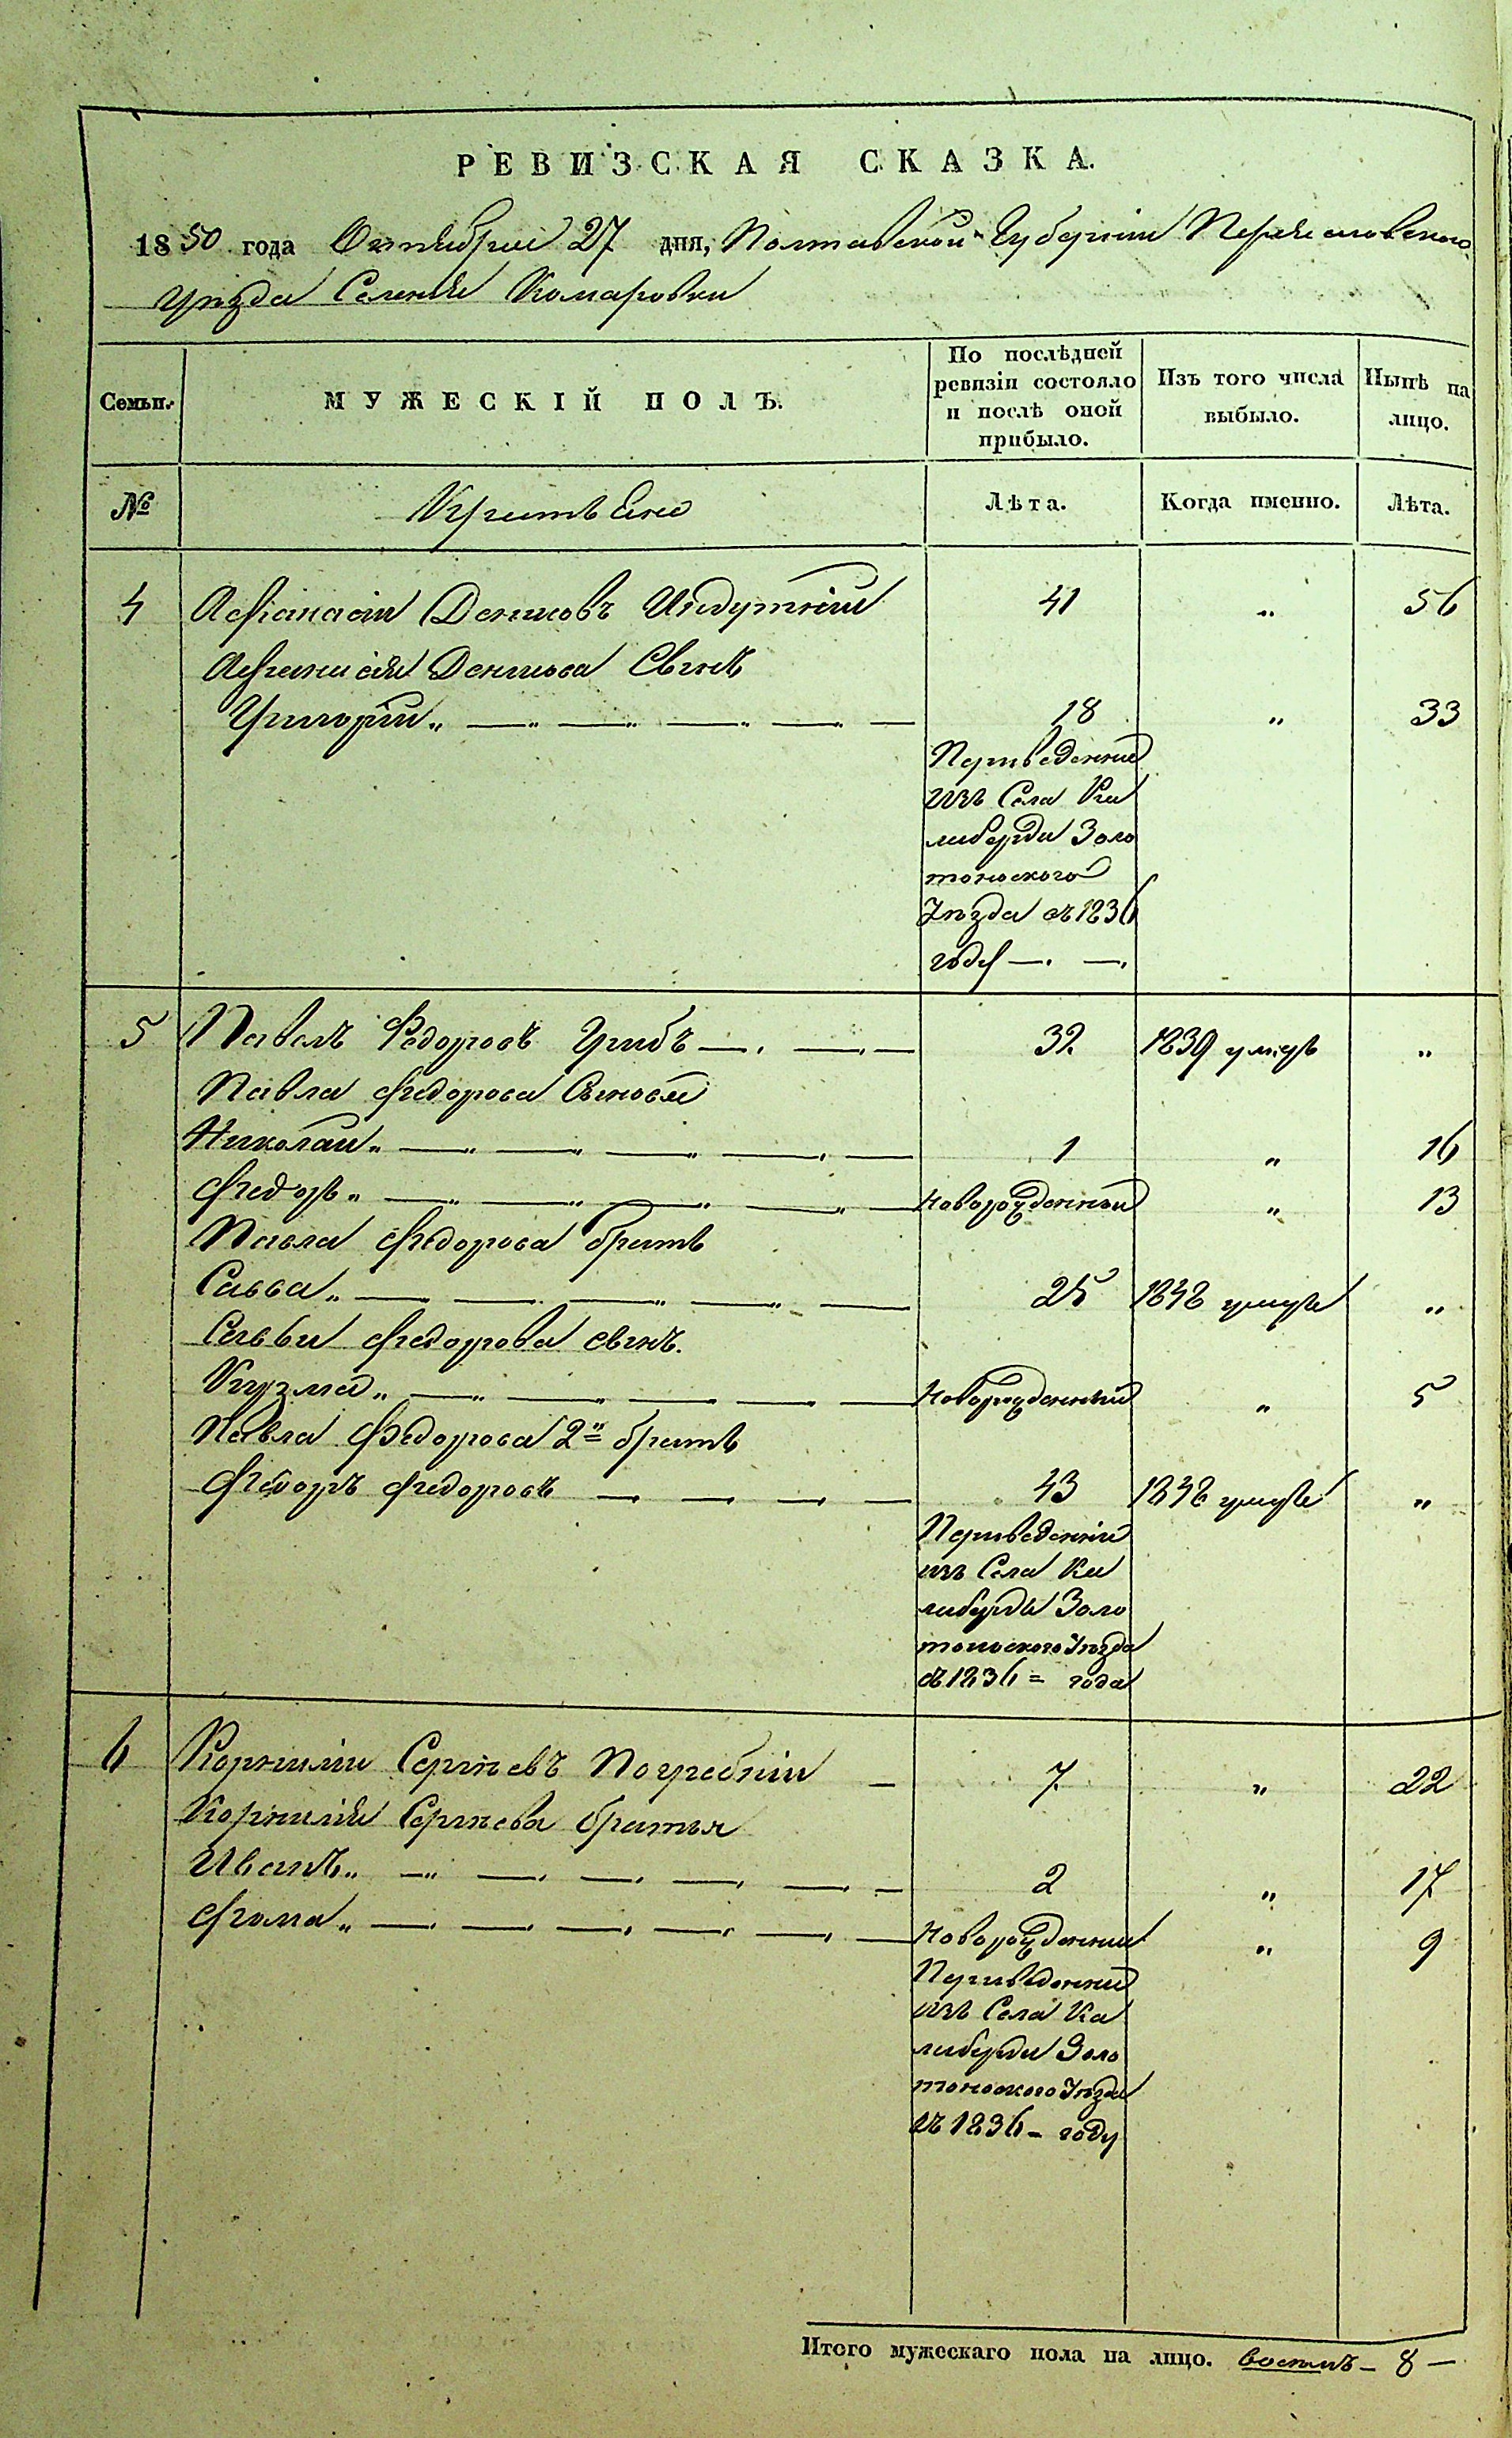 РЕВИЗСКАЯ СКАЗКА.
1850 года Октября 27 дня, Полтавской Губерніи Переяславского
Уѣзда Селенія Комаровки
Семьи. МУЖЕСКІЙ ПОЛЪ. По послѣдней ревизіи состояло и послѣ оной прибыло. Изъ того числа выбыло. Нынѣ на лицо.
№ Крестьяне Лѣта. Когда именно. Лѣта.
4 Афанасій Денисовъ 41 „ 56
Афанасія Денисова Сынъ
Григорій „ 18 „ 33
Переведенни
изъ Села Ке
либерди Золо
тоноского
Уѣзда въ 1836
году
5 Павелъ Федоровъ Грибъ 32 1839 умеръ „
Павла Федорова Сыновя
Николай „ 1 „ 16
Федоръ „ Новорожденный „ 13
Павла Федорова братъ
Савва „ 25 1848 умеръ „
Саввы Федорова сынъ.
Кузма „ Новорожденный „ 5
Павла Федорова 2й братъ
Федоръ Федоровъ 43 1848 умеръ „
Переведенніи
изъ Села Ке
либерди Золо
тоноского Уѣзда
въ 1836 = года
6 Корнилій Сергѣевъ Погребній 7 „ 22
Корнилія Сергѣева братья
Иванъ „ 2 „ 17
Фома „ Новорожденни „ 9
Переведенни
изъ Села Ке
либерди Золо
тоноского Уѣзда
въ 1836 - году
Итого мужескаго пола на лицо. восемъ - 8 -